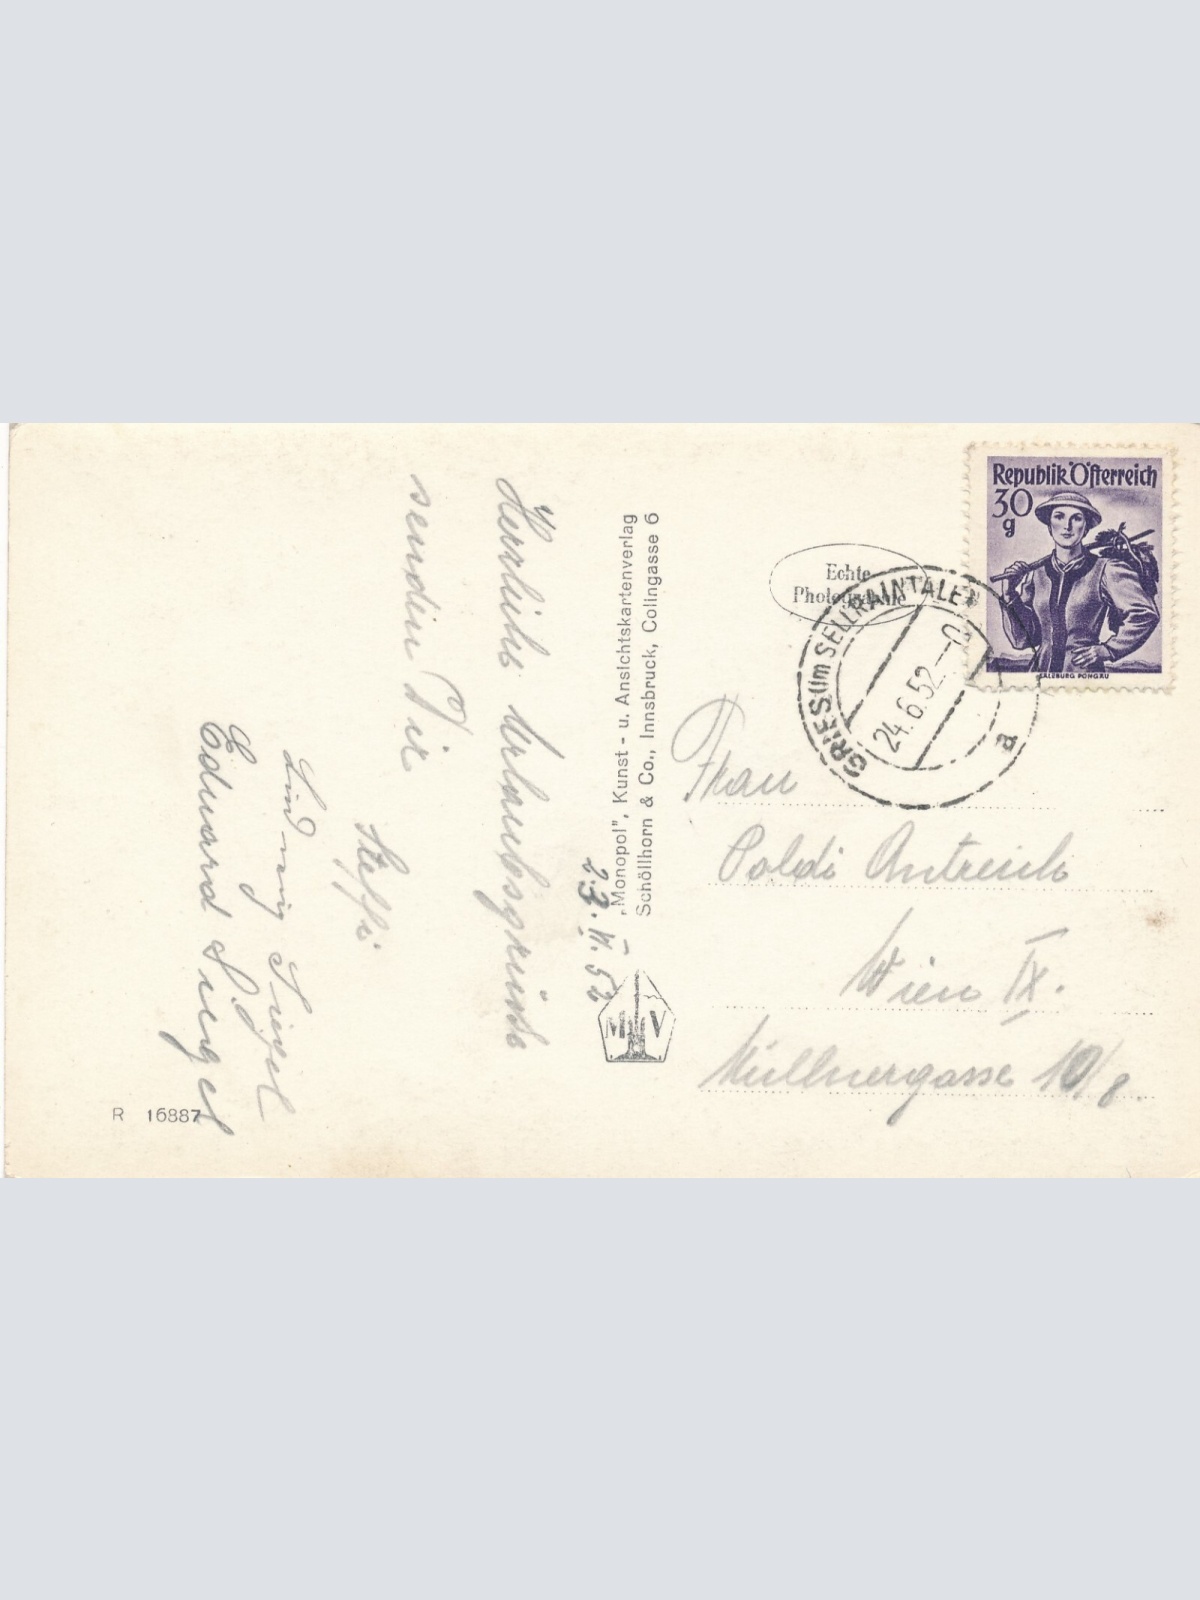 23. VI. 52
Herzliche Urlaubsgrüße
senden Dir
Steffi
Ludwig Siegel
Eduard Siegel
R 16887
„Monopol", Kunst- u. Ansichtskartenverlag
Schöllhorn & Co., Innsbruck, Colingasse 6
M V
Echte
Photographie
GRIES (im SELLRAINTALE)
24.6.52
a
Republik Österreich
30
g
SALZBURG PONGAU
Frau
Poldi Antreich
Wien IX.
Müllnergasse 10/8.